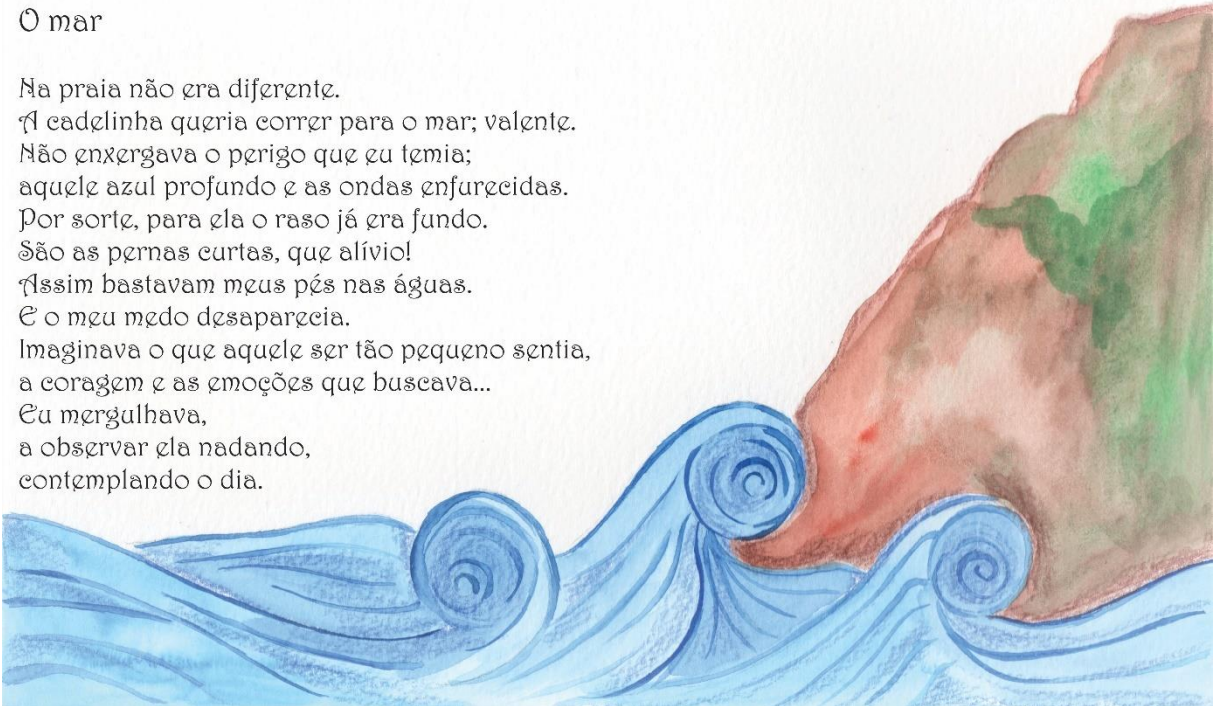 O mar
Na praia não era diferente.
A cadelinha queria correr para o mar; valente.
Não enxergava o perigo que eu temia;
aquele azul profundo e as ondas enfurecidas.
Por sorte, para ela o raso já era fundo.
São as pernas curtas, que alívio!
Assim bastavam meus pés nas águas.
E o meu medo desaparecia.
Imaginava o que aquele ser tão pequeno sentia,
a coragem e as emoções que buscava...
Eu mergulhava,
a observar ela nadando,
contemplando o dia.